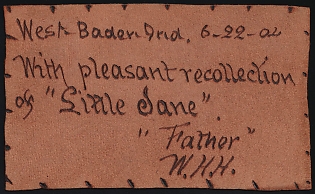 West Baden Ind. 6-22-04
With pleasant recollection
of "Little Jane".
"Father"
W.H.H.